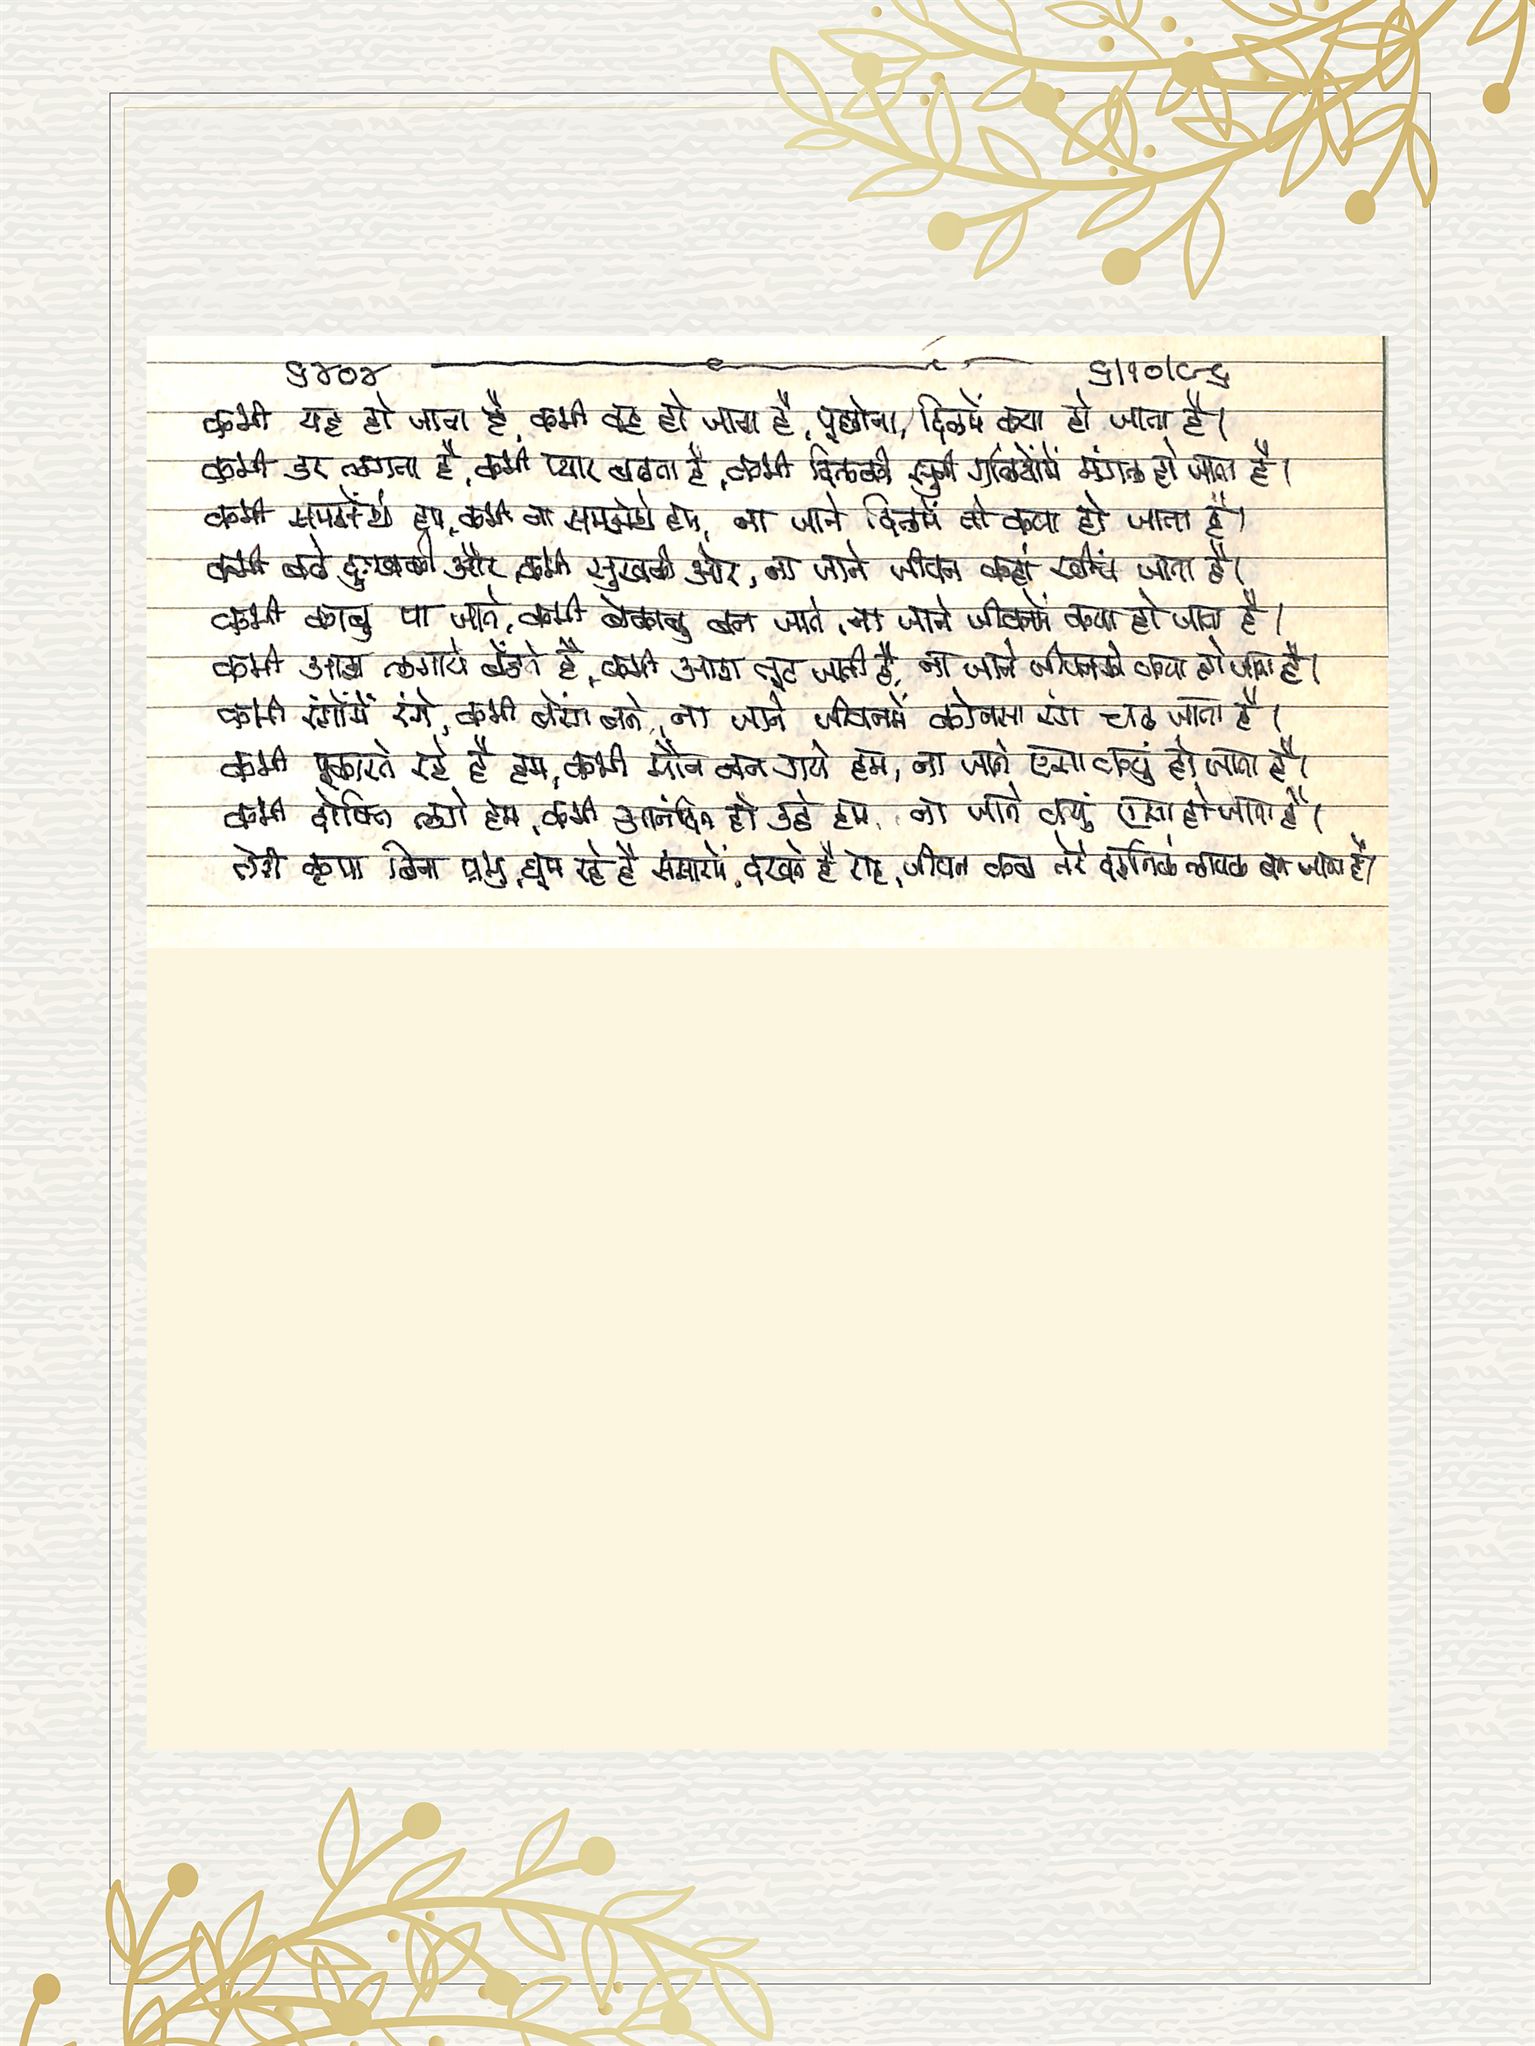 ५४०४ ५/१०/८५
कभी यह हो जाता है, कभी वह हो जाता है, पूछोना, दिलमें क्या हो जाता है।
कभी डर लगता है, कभी प्यार बढता है, कभी दिलकी सुनी गलियोंमें मंगल हो जाता है।
कभी समझेंगे हम, कभी ना समझेंगे हम, ना जाने दिलमें तो क्या हो जाता है।
कभी बढे दुःखकी और, कभी सुखकी ओर, ना जाने जीवन कहां खींच जाता है।
कभी काबु पा जाते, कभी बेकाबु बन जाते, ना जाने जीवनमें क्या हो जाता है।
कभी आश लगाये बैठते है, कभी आश तूट जाती है, ना जाने जीवनको क्या हो जाता है।
कभी रंगोंमें रंगे, कभी बेरंग बने, ना जाने जीवनमें कोनसा रंग चढ जाता है।
कभी पूकारते रहे है हम, कभी मौन बन गये हम, ना जाने एसा क्युं हो जाता है।
कभी लगे हम, कभी आनंदित हो उठे हम, ना जाने क्युं एसा हो जाता है।
तेरी कृपा बिना प्रभु, घूम रहे है संसारमें, देखते है राह, जीवन कब तेरे लायक बन जाता है।